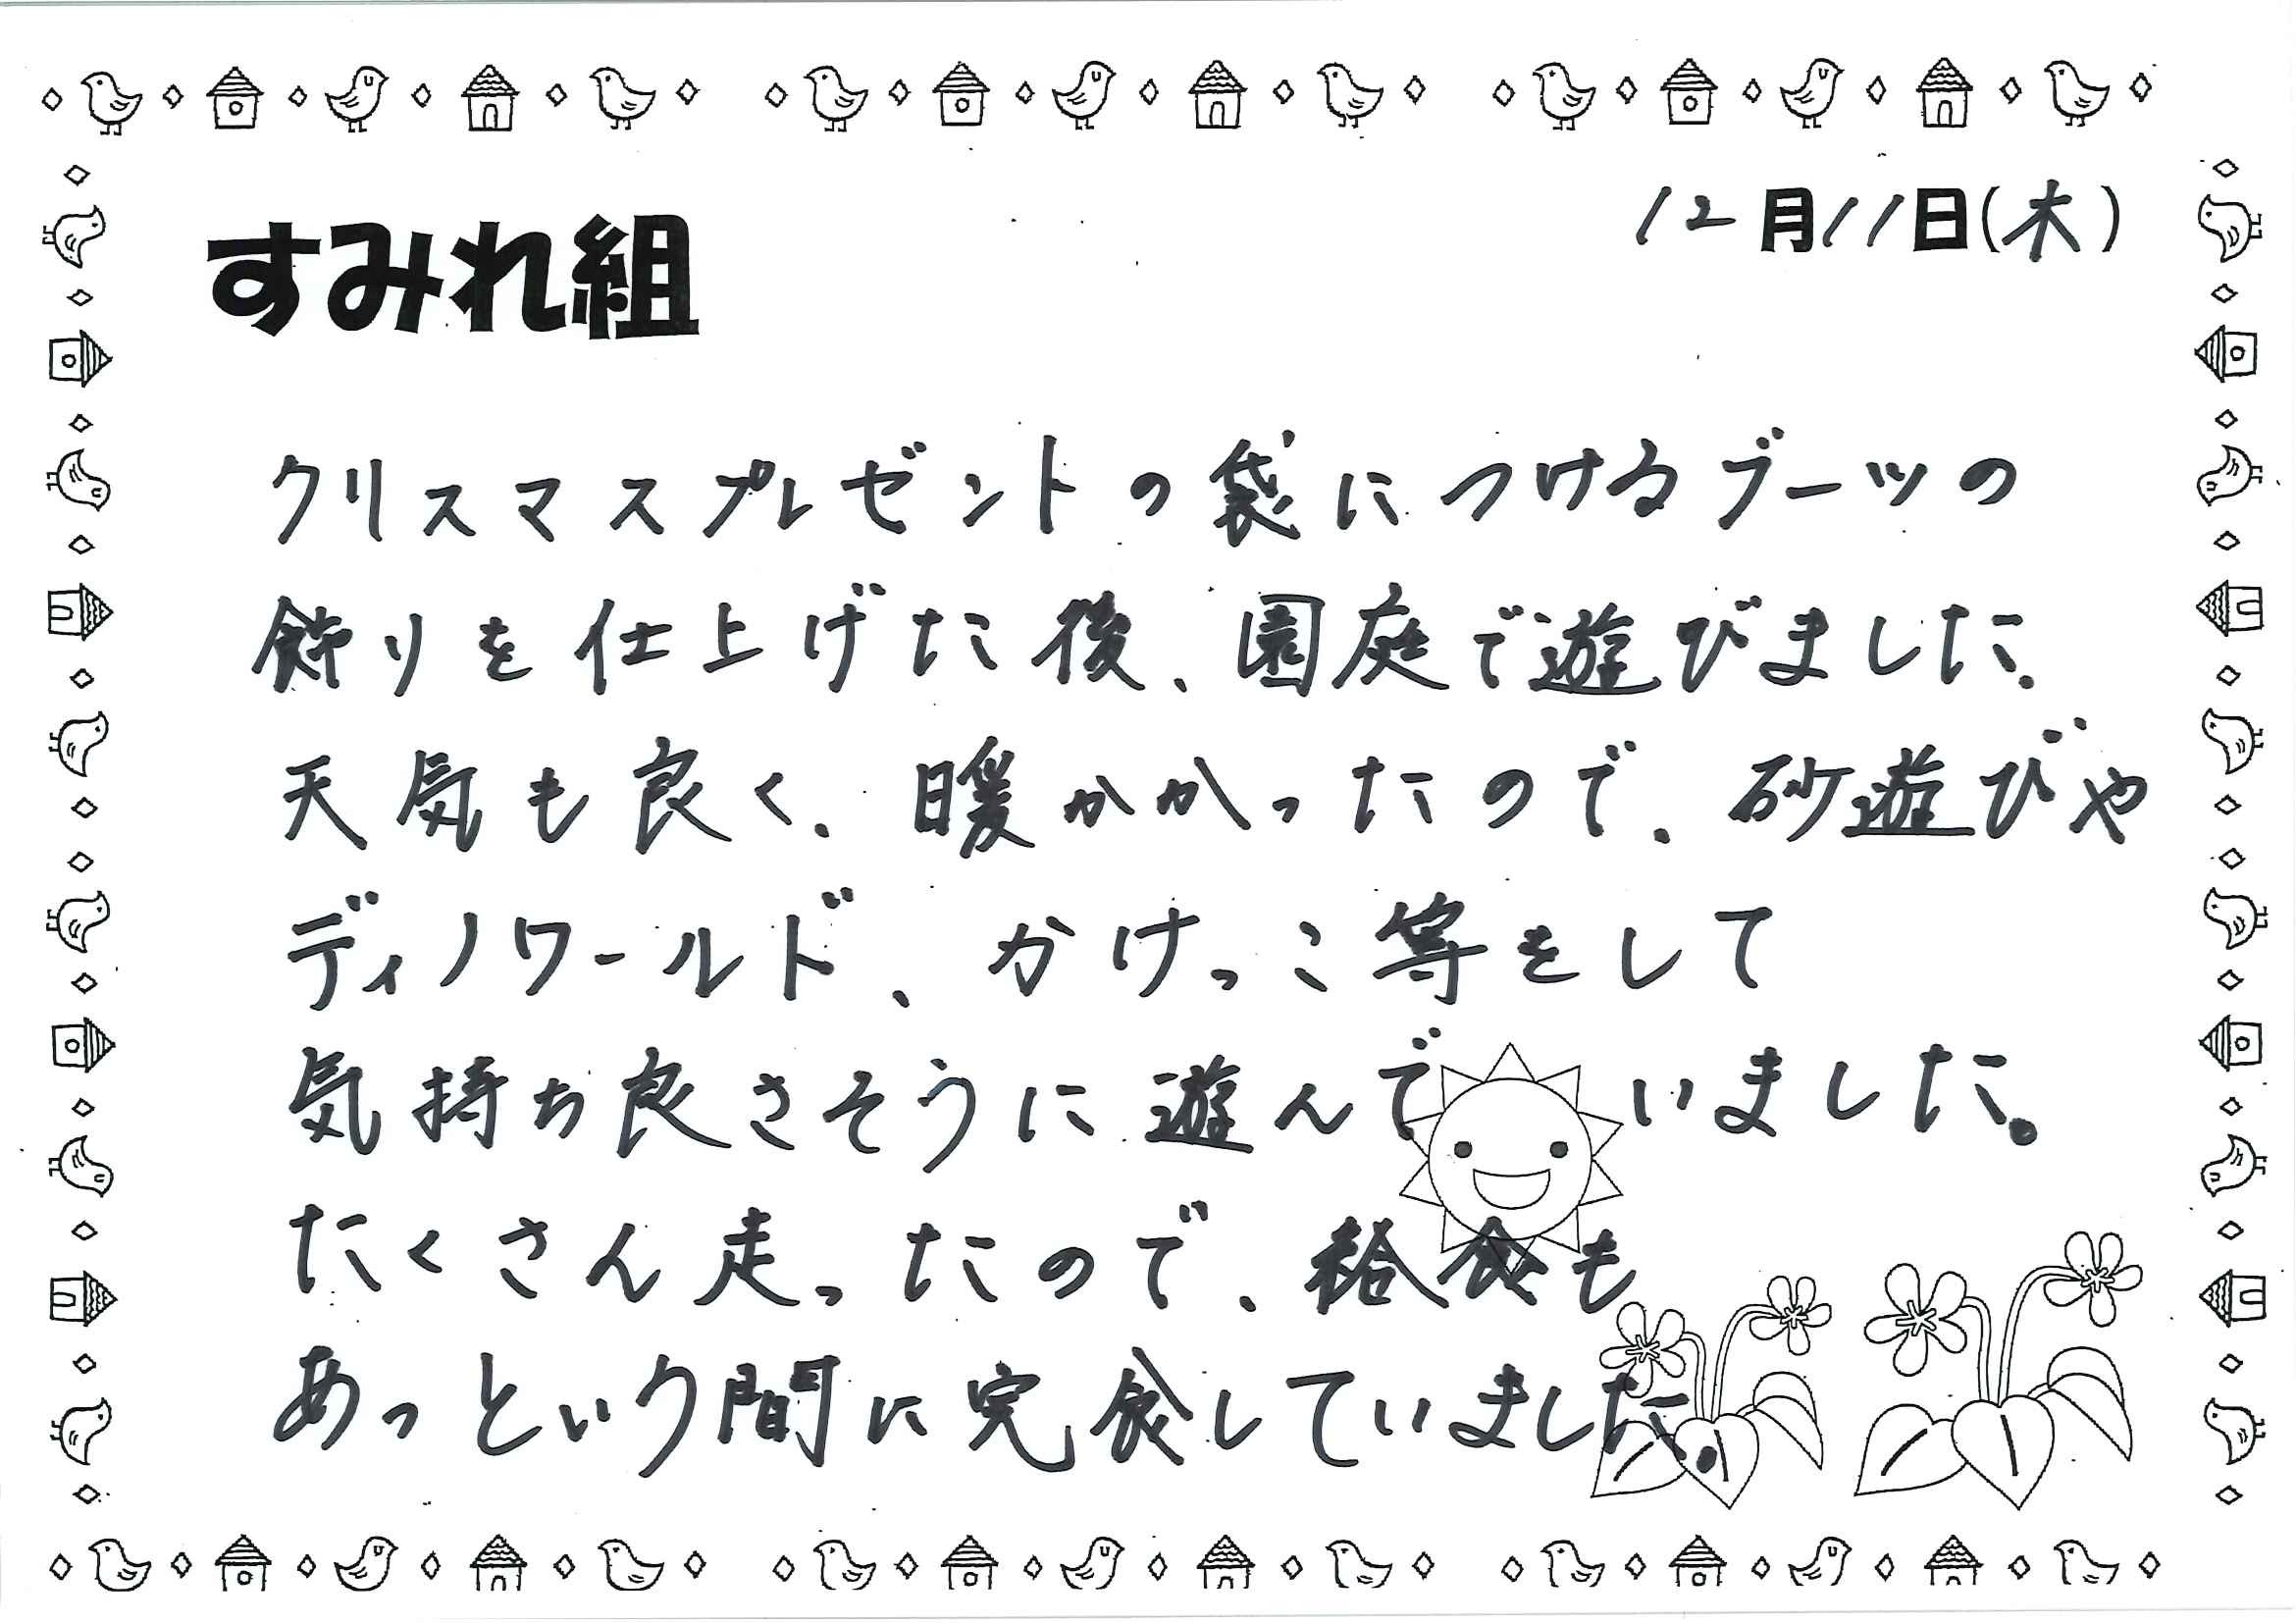 12月11日(木)
すみれ組
クリスマスプレゼントの袋につけるブーツの
飾りを仕上げた後、園庭で遊びました。
天気も良く、暖かかったので、砂遊びや
ディノワールド、かけっこ等をして
気持ち良さそうに遊んでいました。
たくさん走ったので、給食も
あっという間に完食していました。